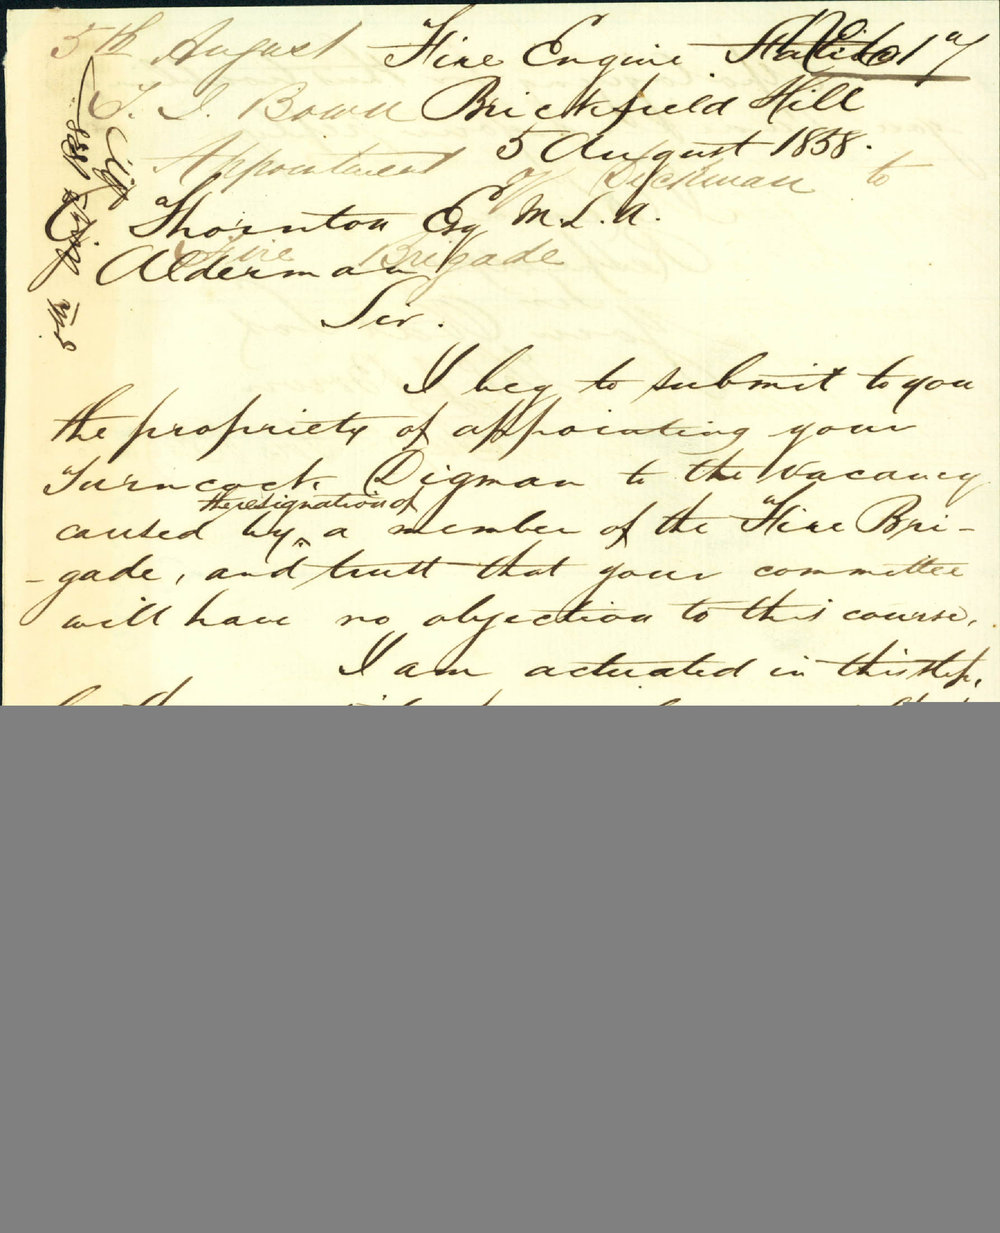 5th August
T. J. Bown
Appointment of Dickman to
Fire Brigade
Fire Engine Station
Brickfield Hill
5 August 1858.
G Thornton Esq M.L.A.
Alderman
Sir.
I beg to submit to you
the propriety of appointing your
Turncock Digman to the vacancy
the resignation of
caused by a member of the Fire Bri-
-gade, and trust that your committee
will have no objection to this course.
I am actuated in this step,